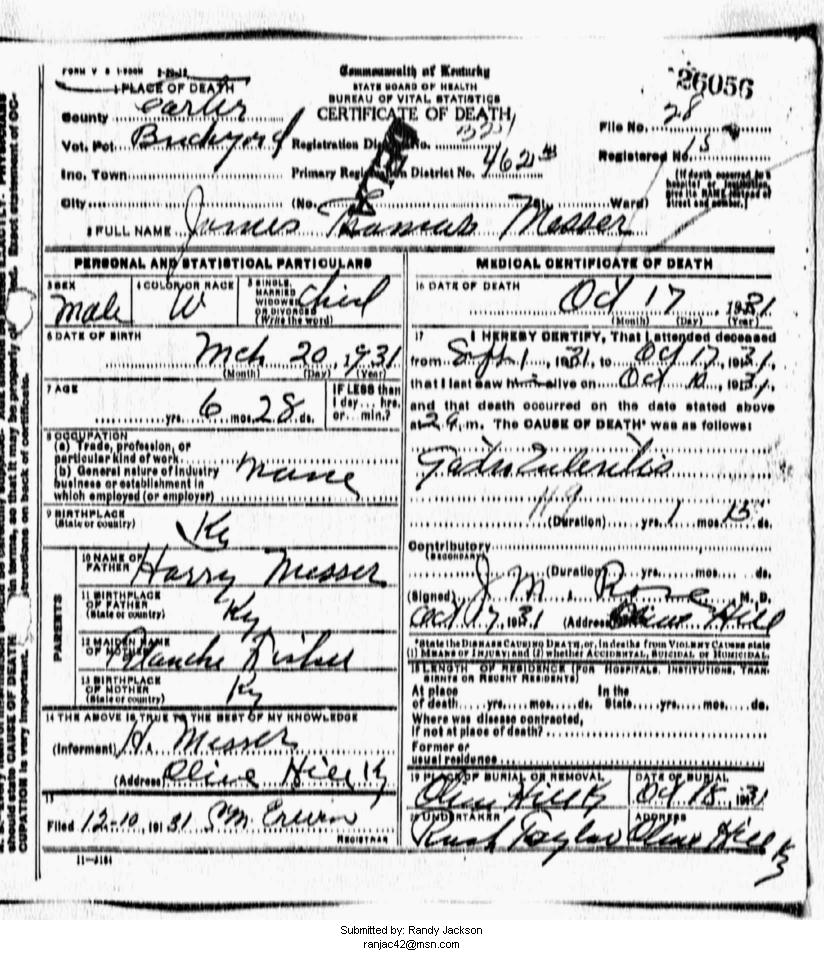 FORM V S 1-
Commonwealth of Kentucky
STATE BOARD OF HEALTH
BUREAU OF VITAL STATISTICS
CERTIFICATE OF DEATH
26056
1 PLACE OF DEATH
County Carter
Vot. Pct. Registration District No.
File No. 28
Inc. Town Primary Registration District No. 462
Registered No. 15
City (No. St. Ward)
(If death occurred in a hospital or institution, give its NAME instead of street and number.)
2 FULL NAME James Thomas Messer
PERSONAL AND STATISTICAL PARTICULARS
3 SEX Male
4 COLOR OR RACE W
5 SINGLE, MARRIED WIDOWED OR DIVORCED (Write the word) Child
6 DATE OF BIRTH Mch 20, 1931
(Month) (Day) (Year)
7 AGE
yrs. 6 mos. 28 ds.
IF LESS than 1 day... hrs. or... min.?
8 OCCUPATION
(a) Trade, profession, or
particular kind of work
(b) General nature of industry
business or establishment in
which employed (or employer)
None
9 BIRTHPLACE
(State or country) Ky
PARENTS
10 NAME OF FATHER Harry Messer
11 BIRTHPLACE OF FATHER (State or country) Ky
12 MAIDEN NAME OF MOTHER Blanche
13 BIRTHPLACE OF MOTHER (State or country) Ky
14 THE ABOVE IS TRUE TO THE BEST OF MY KNOWLEDGE
(Informant) H. Messer
(Address) Olive Hill Ky
15
Filed 12-10, 1931
REGISTRAR
11-3184
MEDICAL CERTIFICATE OF DEATH
16 DATE OF DEATH Oct 17 1931
(Month) (Day) (Year)
17 I HEREBY CERTIFY, That I attended deceased
from Sept 1, 1931, to Oct 17, 1931,
that I last saw him alive on Oct 1931,
and that death occurred on the date stated above
at 2 a. m. The CAUSE OF DEATH* was as follows:
Gastro Enteritis
119
(Duration) yrs. 1 mos. 15 ds.
Contributory
(SECONDARY)
(Duration) yrs. mos. ds.
(Signed) J. M. Rose M. D.
Oct 17, 1931 (Address) Olive Hill
*State the DISEASE CAUSING DEATH, or, in deaths from VIOLENT CAUSES state
(1) MEANS OF INJURY; and (2) whether ACCIDENTAL, SUICIDAL or HOMICIDAL.
18 LENGTH OF RESIDENCE (FOR HOSPITALS, INSTITUTIONS, TRANSIENTS OR RECENT RESIDENTS)
At place of death yrs. mos. ds. In the State yrs. mos. ds.
Where was disease contracted,
if not at place of death?
Former or
usual residence
19 PLACE OF BURIAL OR REMOVAL DATE OF BURIAL
Olive Hill Ky Oct 18, 1931
20 UNDERTAKER ADDRESS
Rush Taylor Olive Hill Ky
Submitted by: Randy Jackson
ranjac42@msn.com